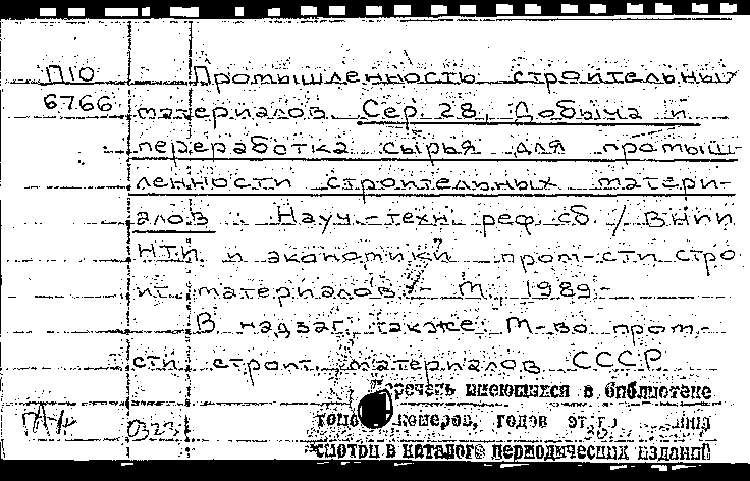 П10
6766
Промышленность строительных
материалов. Сер. 28, Добыча и
переработка сырья для промыш-
ленности строительных матери-
алов : Науч.-техн. реф. сб. / ВНИИ
НТИ и экономики пром-сти стро
ит. материалов. - М., 1989-
В надзаг. также: М-во пром-
сти строит. материалов СССР
Перечень имеющихся в библиотеке
томов, номеров, годов этого
смотри в каталоге периодических изданий